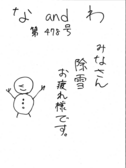 な and わ
第478号
みなさん
除雪
お疲れ様です。